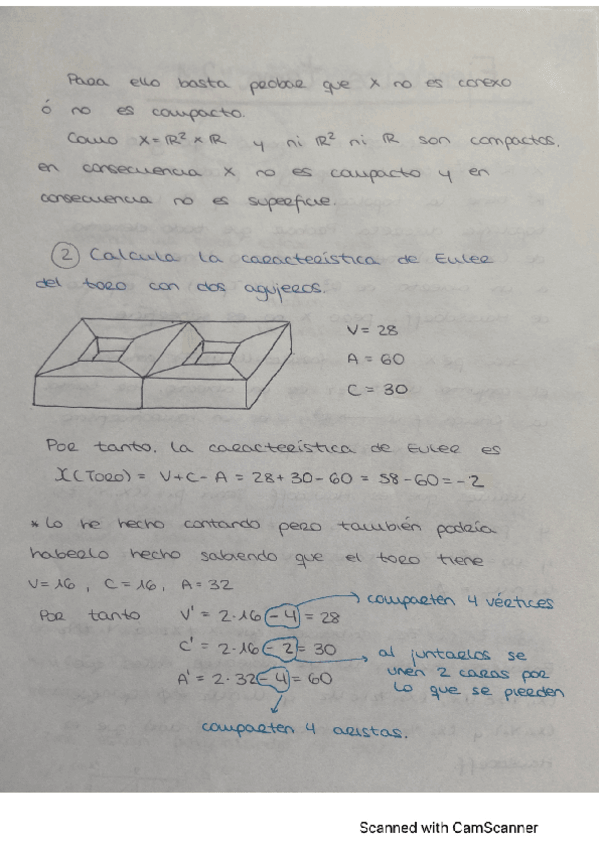 Para ello basta probar que X no es conexo
ó no es compacto.
Como X = ℝ² × ℝ y ni ℝ² ni ℝ son compactos,
en consecuencia X no es compacto y en
consecuencia no es superficie.
② Calcula la característica de Euler
del toro con dos agujeros.
V = 28
A = 60
C = 30
Por tanto, la característica de Euler es
χ(Toro) = V + C - A = 28 + 30 - 60 = 58 - 60 = -2
* Lo he hecho contando pero también podría
haberlo hecho sabiendo que el toro tiene
V = 16, C = 16, A = 32
Por tanto V' = 2·16 - 4 = 28
compartén 4 vértices
C' = 2·16 - 2 = 30
al juntarlos se
unen 2 caras por
lo que se pierden
A' = 2·32 - 4 = 60
comparten 4 aristas.
Scanned with CamScanner